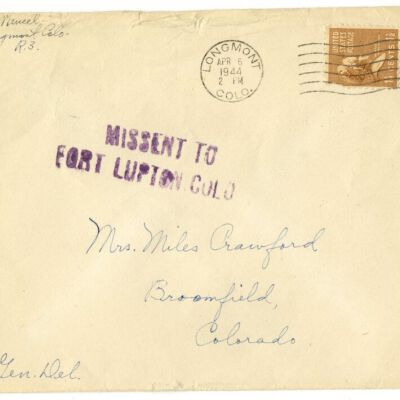 Longmont, Colo.
R.3.
LONGMONT
APR 6
1944
2 PM
COLO.
UNITED
STATES
POSTAGE
MISSENT TO
FORT LUPTON.COLO
Mrs. Miles Crawford
Broomfield,
Colorado
Gen. Del.